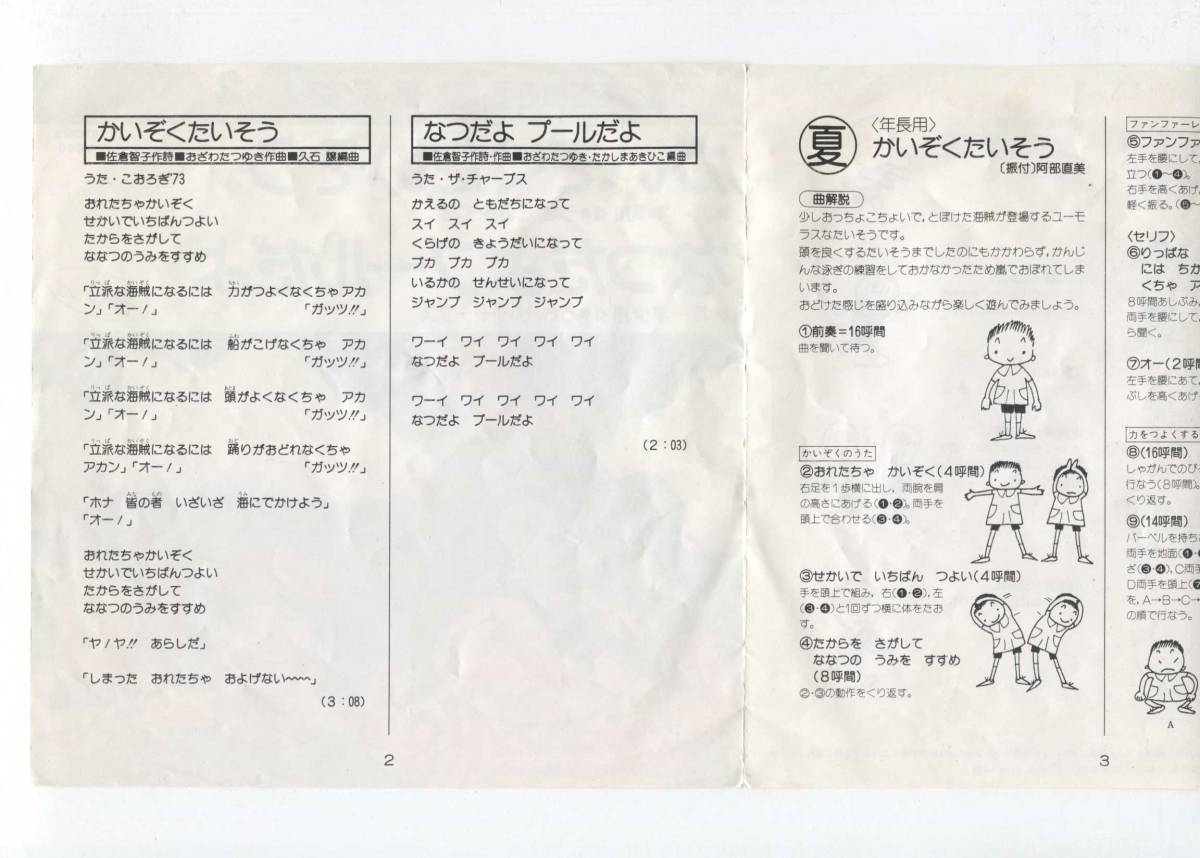 かいぞくたいそう
■佐倉智子作詩■おざわたつゆき作曲■久石 譲編曲
うた・こおろぎ'73
おれたちゃかいぞく
せかいでいちばんつよい
たからをさがして
ななつのうみをすすめ
「立派な海賊になるには 力がつよくなくちゃ アカ
ン」「オー！」 「ガッツ!!」
「立派な海賊になるには 船がこげなくちゃ アカ
ン」「オー！」 「ガッツ!!」
「立派な海賊になるには 頭がよくなくちゃ アカ
ン」「オー！」 「ガッツ!!」
「立派な海賊になるには 踊りがおどれなくちゃ
アカン」「オー！」 「ガッツ!!」
「ホナ 皆の者 いざいざ 海にでかけよう」
「オー！」
おれたちゃかいぞく
せかいでいちばんつよい
たからをさがして
ななつのうみをすすめ
「ヤ！ヤ!! あらしだ」
「しまった おれたちゃ およげない〜〜〜」
(3：08)
なつだよ プールだよ
■佐倉智子作詩・作曲■おざわたつゆき・たかしまあきひこ編曲
うた・ザ・チャープス
かえるの ともだちになって
スイ スイ スイ
くらげの きょうだいになって
プカ プカ プカ
いるかの せんせいになって
ジャンプ ジャンプ ジャンプ
ワーイ ワイ ワイ ワイ ワイ
なつだよ プールだよ
ワーイ ワイ ワイ ワイ ワイ
なつだよ プールだよ
(2：03)
2
夏
〈年長用〉
かいぞくたいそう
〔振付〕阿部直美
曲解説
少しおっちょこちょいで，とぼけた海賊が登場するユーモ
ラスなたいそうです。
頭を良くするたいそうまでしたのにもかかわらず，かんじ
んな泳ぎの練習をしておかなかったため嵐でおぼれてしま
います。
おどけた感じを盛り込みながら楽しく遊んでみましょう。
①前奏＝16呼間
曲を聞いて待つ。
かいぞくのうた
②おれたちゃ かいぞく(4呼間)
右足を1歩横に出し，両腕を肩
の高さにあげる(❶・❷)。両手を
頭上で合わせる(❸・❹)。
③せかいで いちばん つよい(4呼間)
手を頭上で組み，右(❶・❷)，左
(❸・❹)と1回ずつ横に体をたお
す。
④たからを さがして
ななつの うみを すすめ
(8呼間)
②・③の動作をくり返す。
3
ファンファーレ
⑤ファンファ
左手を腰にして，
立つ(❶〜❹)。
右手を高くあげ，
軽く振る。(❺〜
〈セリフ〉
⑥りっぱな
には ちか
くちゃ ア
8呼間あしぶみ，
両手を腰にして，
ら聞く。
⑦オー(2呼間
左手を腰にあて，
ぶしを高くあげ
力をつよくする
⑧(16呼間)
しゃがんでのび
行なう(8呼間)。
くり返す。
⑨(14呼間)
バーベルを持ち
両手を地面(❶・
ざ(❸・❹)，C両手
D両手を頭上(❼
を，A→B→C→
の順で行なう。
A